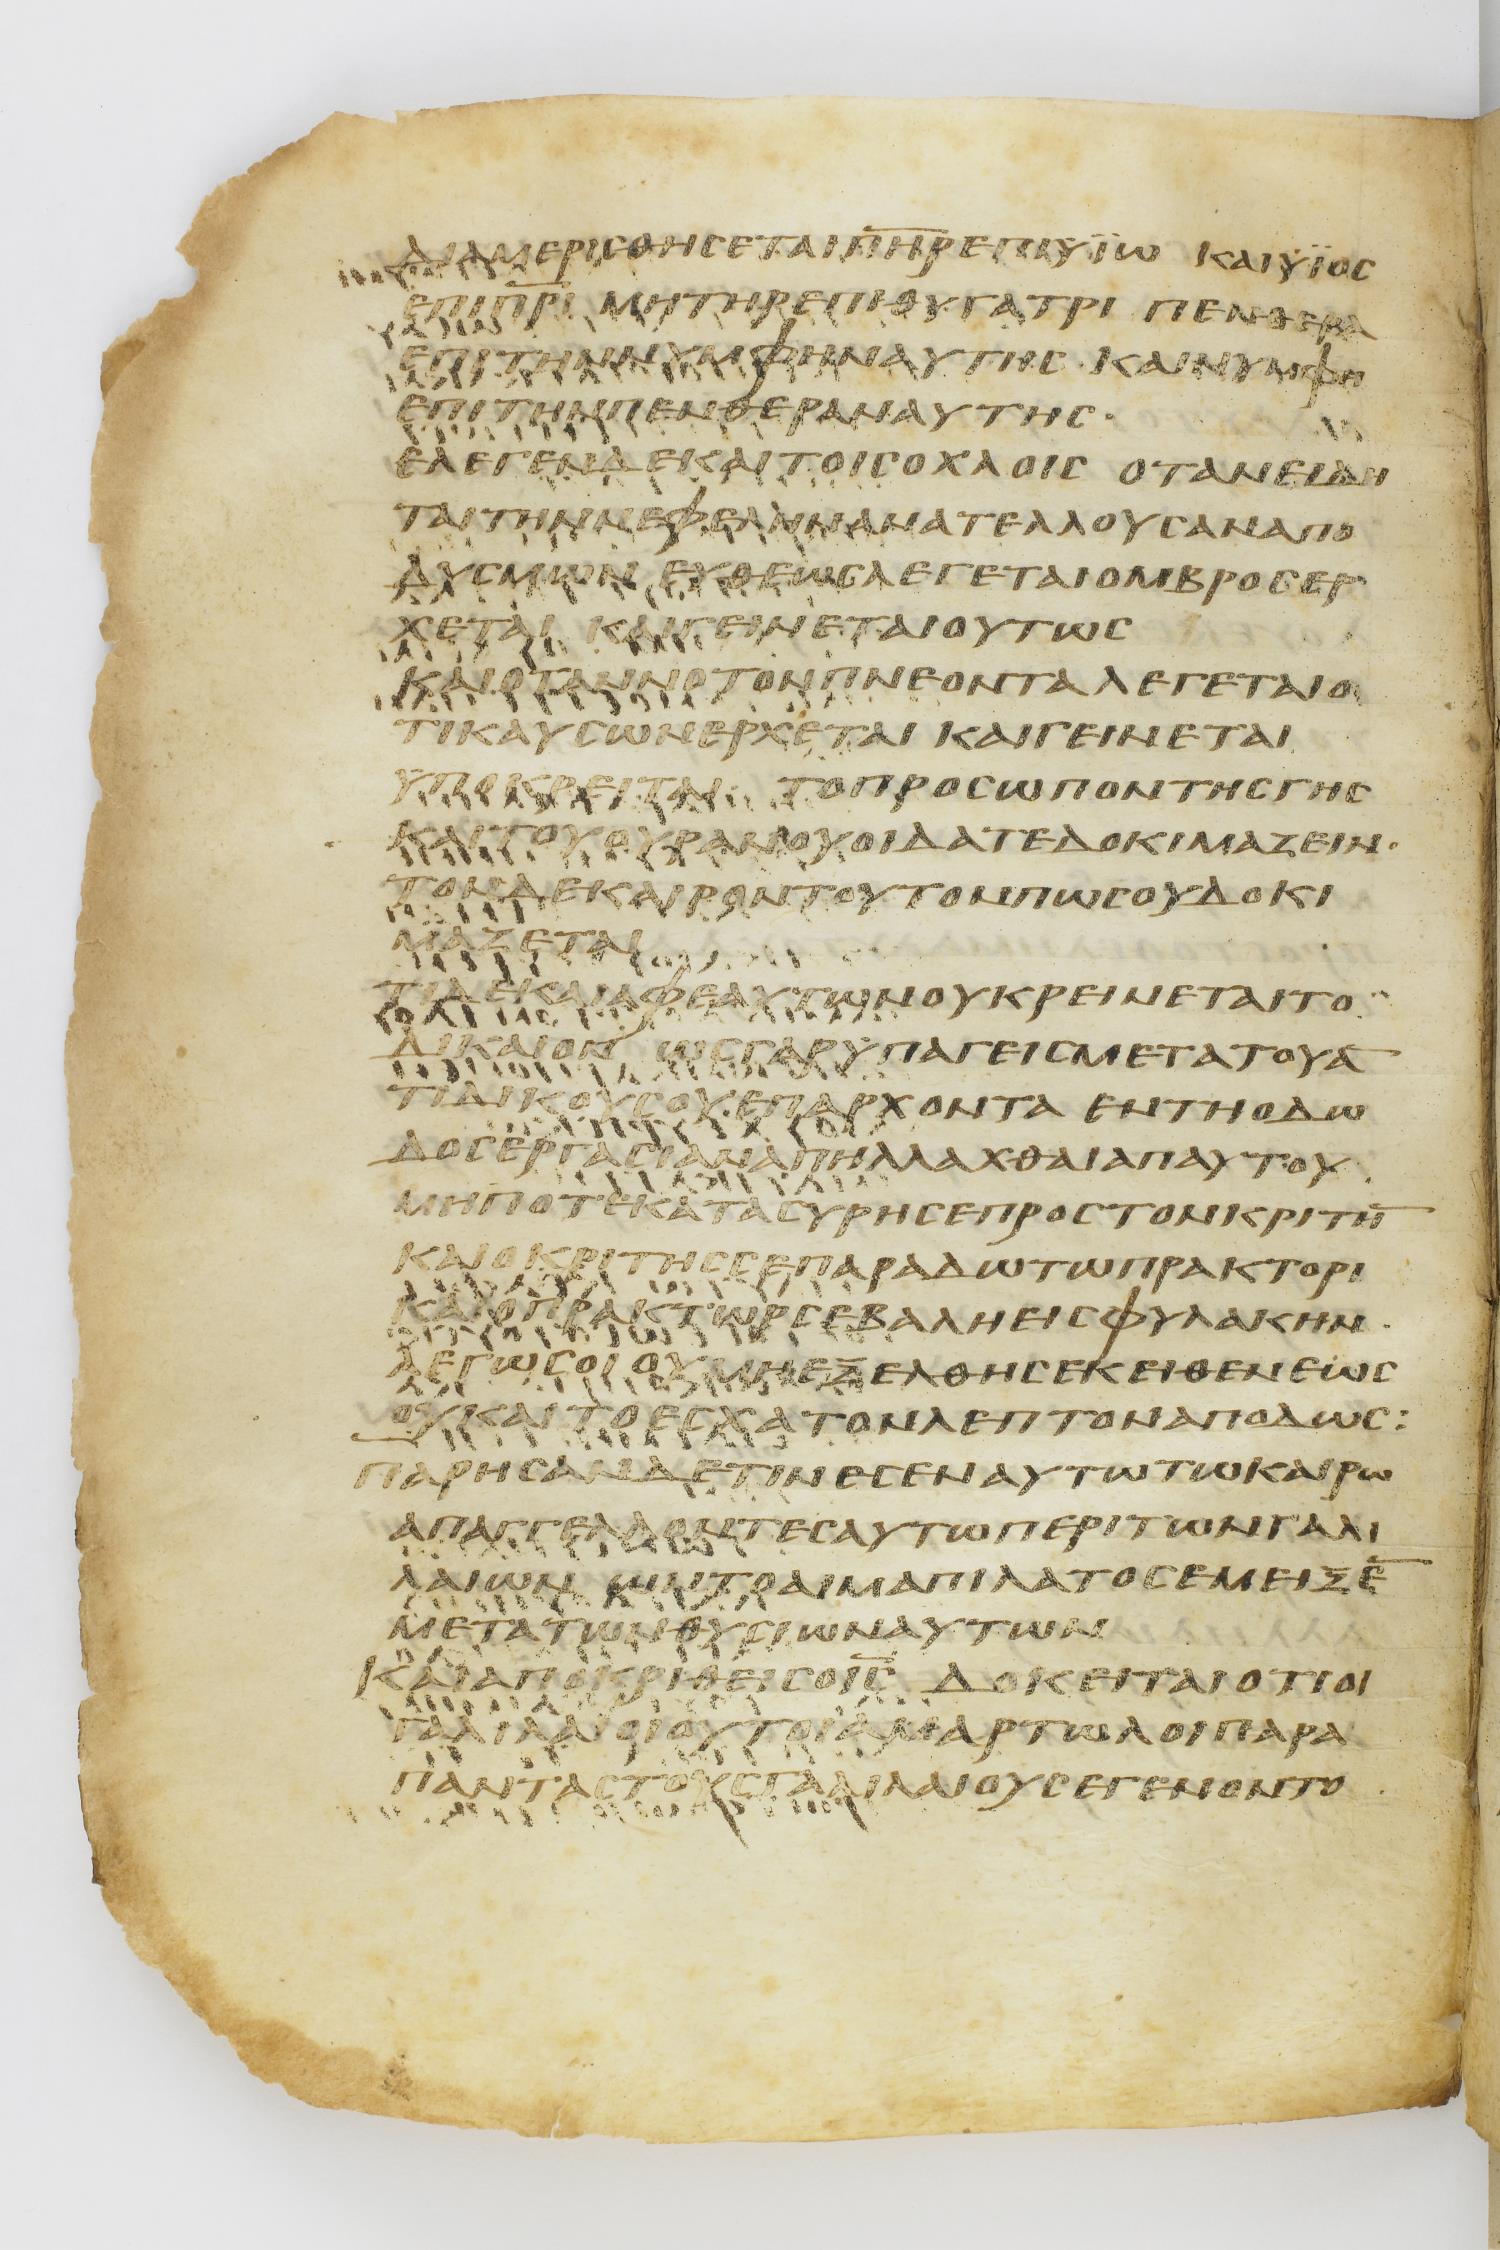 ΔΙΑΜΕΡΙϹΘΗϹΕΤΑΙ ΠΗΡ ΕΠΙ ΫΪΩ ΚΑΙ ΫΪΟϹ
ΕΠΙ ΠΡΙ ΜΗΤΗΡ ΕΠΙ ΘΥΓΑΤΡΙ ΠΕΝΘΕΡΑ
ΕΠΙ ΤΗΝ ΝΥΜΦΗΝ ΑΥΤΗϹ ΚΑΙ ΝΥΜΦΗ
ΕΠΙ ΤΗΝ ΠΕΝΘΕΡΑΝ ΑΥΤΗϹ·
ΕΛΕΓΕΝ ΔΕ ΚΑΙ ΤΟΙϹ ΟΧΛΟΙϹ ΟΤΑΝ ΕΙΔΗ
ΤΑΙ ΤΗΝ ΝΕΦΕΛΗΝ ΑΝΑΤΕΛΛΟΥϹΑΝ ΑΠΟ
ΔΥϹΜΩΝ ΕΥΘΕΩϹ ΛΕΓΕΤΑΙ ΟΜΒΡΟϹ ΕΡ
ΧΕΤΑΙ ΚΑΙ ΓΕΙΝΕΤΑΙ ΟΥΤΩϹ
ΚΑΙ ΟΤΑΝ ΝΟΤΟΝ ΠΝΕΟΝΤΑ ΛΕΓΕΤΑΙ Ο
ΤΙ ΚΑΥϹΩΝ ΕΡΧΕΤΑΙ ΚΑΙ ΓΕΙΝΕΤΑΙ
ΥΠΟΚΡΕΙΤΑΙ ΤΟ ΠΡΟϹΩΠΟΝ ΤΗϹ ΓΗϹ
ΚΑΙ ΤΟΥ ΟΥΡΑΝΟΥ ΟΙΔΑΤΕ ΔΟΚΙΜΑΖΕΙΝ·
ΤΟΝ ΔΕ ΚΑΙΡΟΝ ΤΟΥΤΟΝ ΠΩϹ ΟΥ ΔΟΚΙ
ΜΑΖΕΤΑΙ
ΤΙ ΔΕ ΚΑΙ ΑΦ ΕΑΥΤΩΝ ΟΥ ΚΡΕΙΝΕΤΑΙ ΤΟ
ΔΙΚΑΙΟΝ ΩϹ ΓΑΡ ΫΠΑΓΕΙϹ ΜΕΤΑ ΤΟΥ Α̅
ΤΙΔΙΚΟΥ ϹΟΥ ΕΠ ΑΡΧΟΝΤΑ ΕΝ ΤΗ ΟΔΩ
ΔΟϹ ΕΡΓΑϹΙΑΝ ΑΠΗΛΛΑΧΘΑΙ ΑΠ ΑΥΤΟΥ
ΜΗΠΟΤΕ ΚΑΤΑϹΥΡΗ ϹΕ ΠΡΟϹ ΤΟΝ ΚΡΙΤΗ̅
ΚΑΙ Ο ΚΡΙΤΗϹ ϹΕ ΠΑΡΑΔΩ ΤΩ ΠΡΑΚΤΟΡΙ
ΚΑΙ Ο ΠΡΑΚΤΩΡ ϹΕ ΒΑΛΗ ΕΙϹ ΦΥΛΑΚΗΝ·
ΛΕΓΩ ϹΟΙ ΟΥ ΜΗ ΕΞΕΛΘΗϹ ΕΚΕΙΘΕΝ ΕΩϹ
ΟΥ ΚΑΙ ΤΟ ΕϹΧΑΤΟΝ ΛΕΠΤΟΝ ΑΠΟΔΩϹ:
ΠΑΡΗϹΑΝ ΔΕ ΤΙΝΕϹ ΕΝ ΑΥΤΩ ΤΩ ΚΑΙΡΩ
ΑΠΑΓΓΕΛΛΟΝΤΕϹ ΑΥΤΩ ΠΕΡΙ ΤΩΝ ΓΑΛΙ
ΛΑΙΩΝ ΩΝ ΤΟ ΑΙΜΑ ΠΙΛΑΤΟϹ ΕΜΕΙΞΕ̅
ΜΕΤΑ ΤΩΝ ΘΥϹΙΩΝ ΑΥΤΩΝ
ΚΑΙ ΑΠΟΚΡΙΘΕΙϹ Ο ΙϹ ΔΟΚΕΙΤΑΙ ΟΤΙ ΟΙ
ΓΑΛΙΛΑΙΟΙ ΟΥΤΟΙ ΑΜΑΡΤΩΛΟΙ ΠΑΡΑ
ΠΑΝΤΑϹ ΤΟΥϹ ΓΑΛΙΛΑΙΟΥϹ ΕΓΕΝΟΝΤΟ